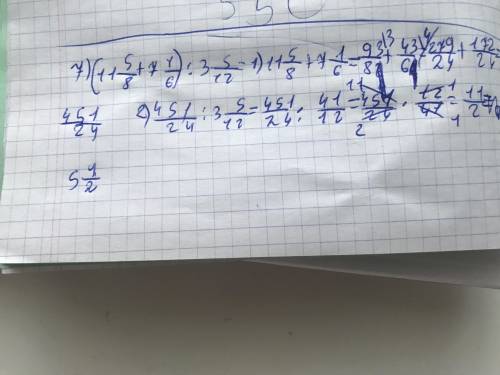 7) (11 5/8 + 7 1/6) : 3 5/12 = 1) 11 5/8 + 7 1/6 = 93/8 \3 + 43/6 \4 = 279/24 + 172/24
451/24 2) 451/24 : 3 5/12 = 451/24 : 41/12 = 451/24 · 12/41 = 11/2
5 1/2